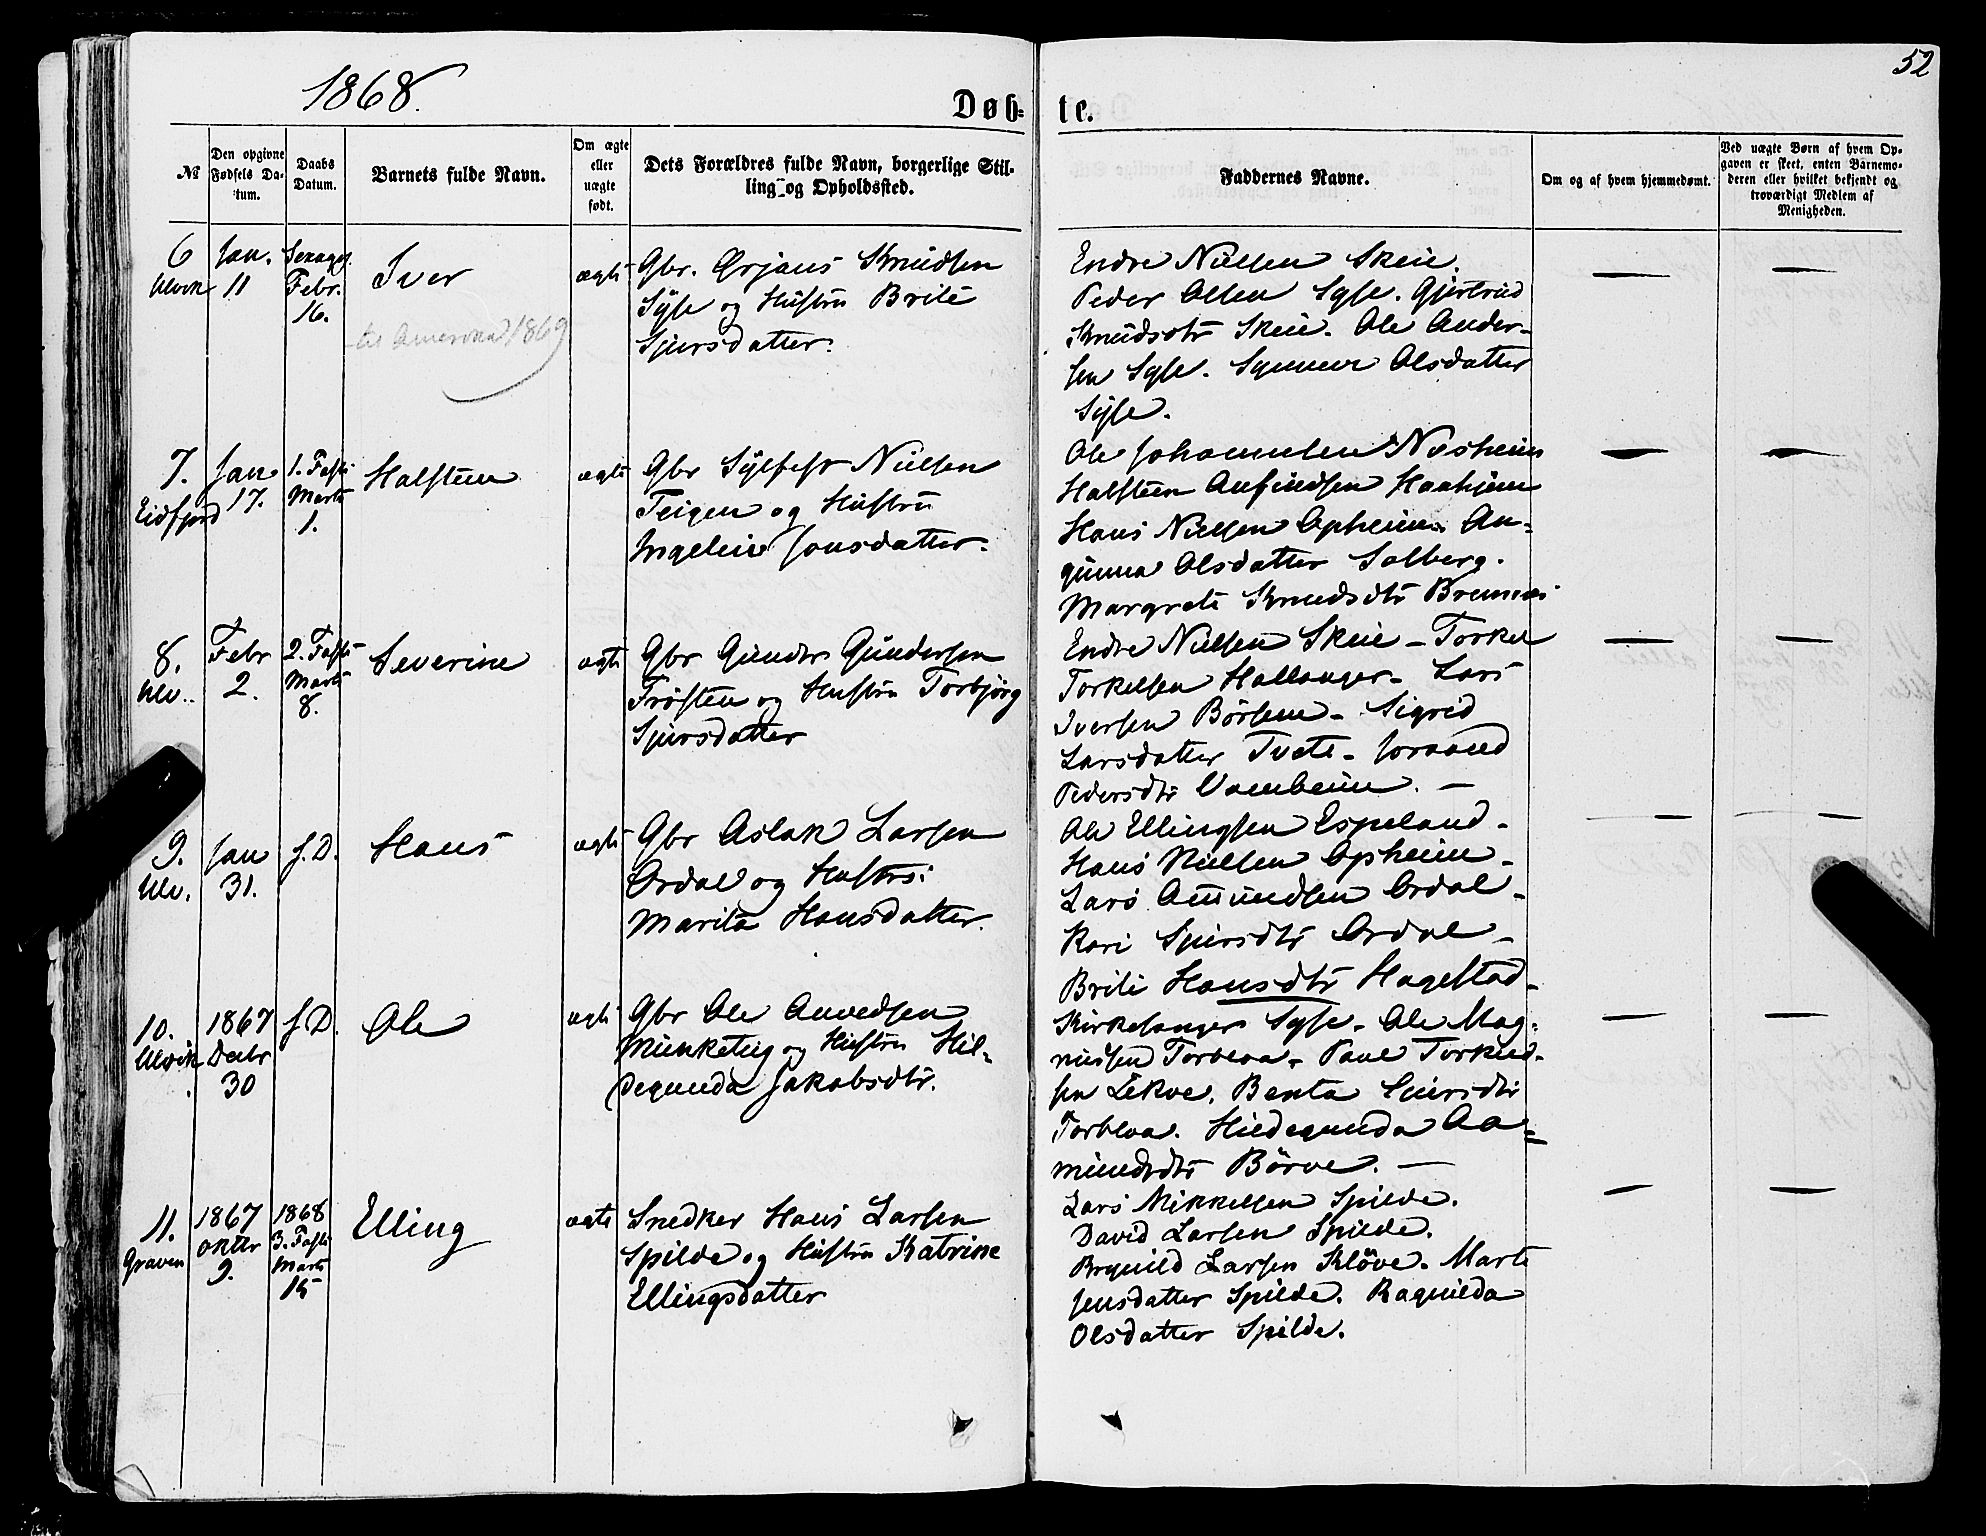 1868.
52
Døb-
te.
№
Den opgivne
Fødsels Da-
tum.
Daabs
Datum.
Barnets fulde Navn.
Om ægte
eller
uægte
født.
Dets Forældres fulde Navn, borgerlige Stil-
ling og Opholdssted.
Faddernes Navne.
Om og af hvem hjemmedøbt.
Ved uægte Børn af hvem Op-
gaven er skeet, enten Barnemo-
deren eller hvilket bekjendt og
troværdigt Medlem af
Menigheden.
6
Ulvik
Jan.
11
Sexages.
Febr.
16.
Iver
til Amerika 1869
ægte
Gbr. Ørjans Knudsen
Syse og Hustru Brite
Sjursdatter.
Endre Nielsen Skeie.
Peder Olsen Syse. Gjertrud
Knudsdtr Skeie. Ole Ander-
sen Syse. Synneve Olsdatter
Syse.
7.
Eidfjord
Jan
17.
1. Faste
Marts
1.
Halsteen
ægte
Gbr Sylfest Nielsen
Teigen og Hustru
Ingeleiv Jonsdatter.
Ole Johannesen Nesheim
Halsteen Anfindsen Haaheim
Hans Nielsen Opheim. An-
gunna Olsdatter Solberg.
Margrete Knudsdtr Bremnes
8.
Ulv..
Febr
2.
2. Faste
Marts
8.
Severine
ægte
Gbr Gunder Gundersen
Trøsten og Hustru Torbjørg
Sjursdatter
Endre Nielsen Skeie - Torkel
Torkelsen Hallanger - Lars
Iversen Börsem - Sigrid
Larsdatter Tvete - Joraand
Pedersdtr Vambheim. —
9.
Ulv.
Jan
31.
s. D.
Hans
ægte
Gbr Aslak Larsen
Ordal og Hustru
Marita Hansdatter.
Ole Ellingsen Espeland -
Hans Nielsen Opheim -
Lars Amundsen Ordal -
Kari Sjursdtr Ordal -
Brite Hansdtr Hagestad -
10.
Ulvik
1867
Decbr
30
s. D.
Ole
ægte
Gbr Ole Anvedsen
Munketeig og Hustru Hil-
degunda Jakobsdtr.
Kirkesanger Syse - Ole Mag-
nussen Torblaa - Paul Torkild-
sen Lekve. Benta Sjursdtr
Torblaa. Hildegunda Aa-
mundsdtr Börve. —
11.
Graven
1867
Oktbr
9.
1868
3. Faste
Marts
15
Elling
ægte
Snedker Hans Larsen
Spilde og Hustru Katrine
Ellingsdatter
Lars Mikkelsen Spilde.
David Larsen Spilde.
Brynild Larsen Klöve. Marte
Jensdatter Spilde. Ragnilda
Olsdatter Spilde.